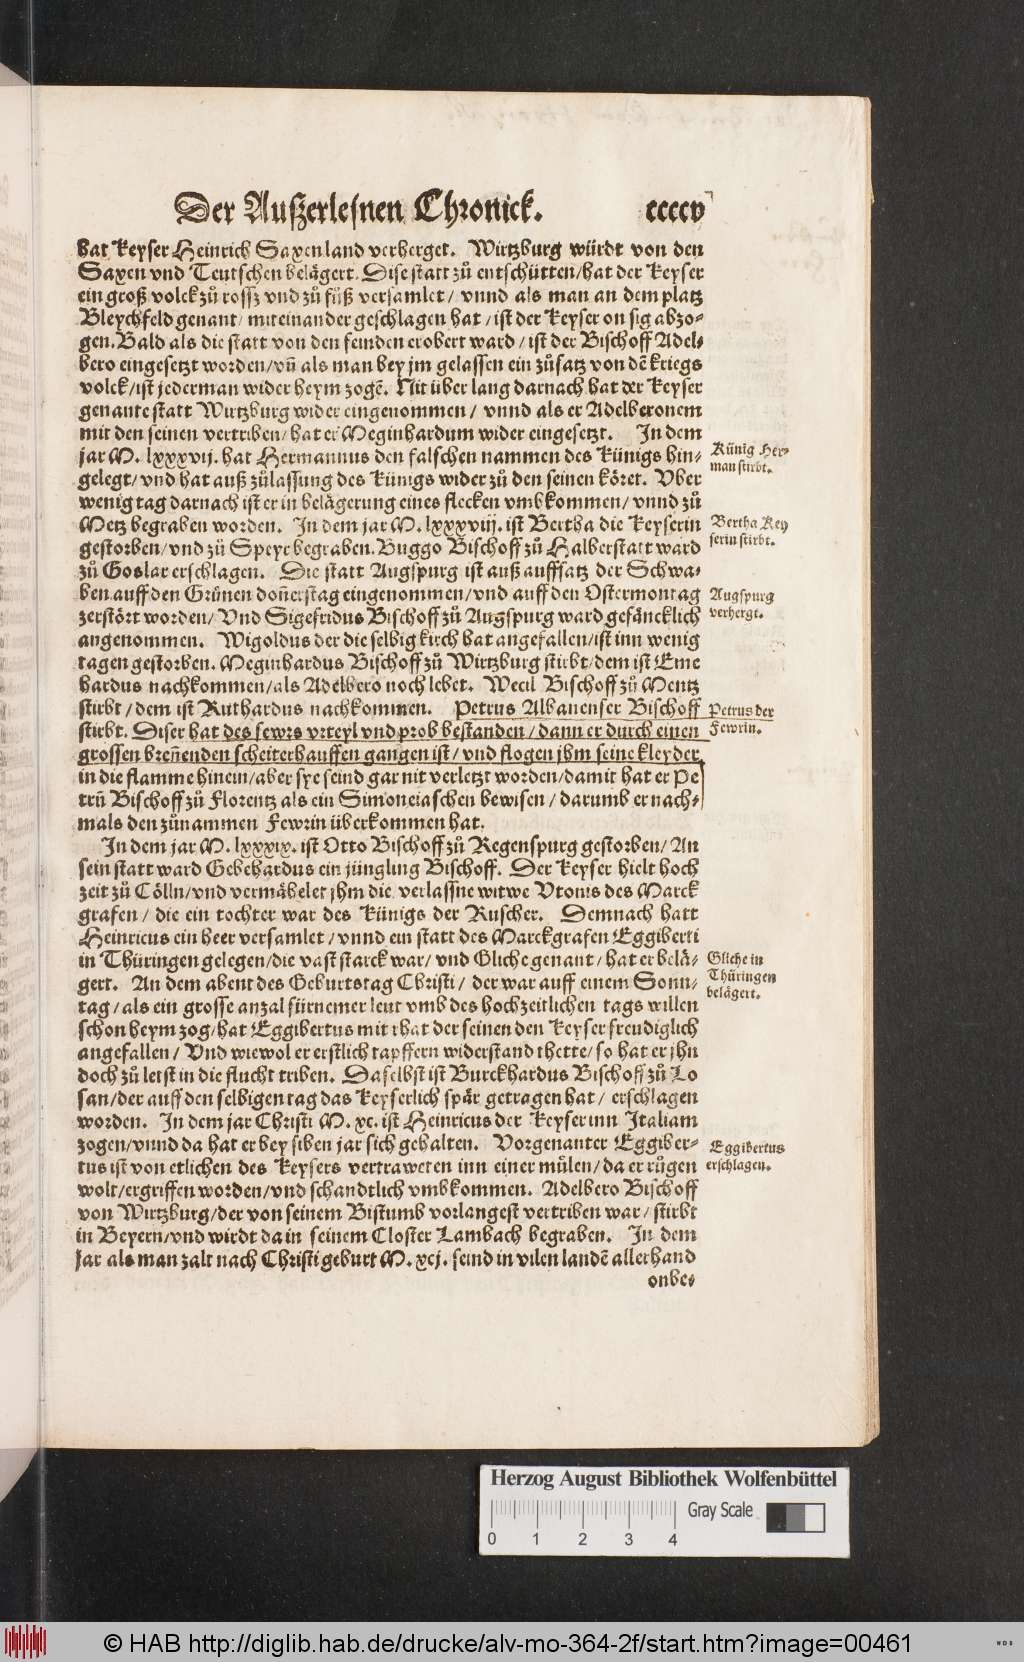 Der Außerlesnen Chronick. ccccv
hat Keyser Heinrich Saxenland verherget. Wirtzburg würdt von den
Saxen vnd Teutschen belägert. Dise statt zů entschütten/hat der Keyser
ein groß volck zů rossz vnd zů fůß versamlet/ vnnd als man an dem platz
Bleychfeld genant/ miteinander geschlagen hat/ist der Keyser on sig abzo-
gen. Bald als die statt von den feinden erobert ward/ist der Bischoff Adel-
bero eingesetzt worden/vñ als man bey jm gelassen ein zůsatz von dẽ kriegs
volck/ist jederman wider heym zogẽ. Nit über lang darnach hat der Keyser
genante statt Wirtzburg wider eingenommen/ vnnd als er Adelberonem
mit den seinen vertriben/hat er Meginhardum wider eingesetzt. In dem
jar M. lxxxvij. hat Hermannus den falschen nammen des Künigs hin-
gelegt/vnd hat auß zůlassung des Künigs wider zů den seinen köret. Vber
wenig tag darnach ist er in belägerung eines flecken vmbkommen/vnnd zů
Metz begraben worden. In dem jar M. lxxxviij. ist Bertha die Keyserin
gestorben/vnd zů Speyr begraben. Buggo Bischoff zů Halberstatt ward
zů Goslar erschlagen. Die statt Augspurg ist auß auffsatz der Schwa-
ben auff den Grůnen doñerstag eingenommen/vnd auff den Ostermontag
zerstört worden/ Vnd Sigefridus Bischoff zů Augspurg ward gefäncklich
angenommen. Wigoldus der die selbig kirch hat angefallen/ist inn wenig
tagen gestorben. Meginhardus Bischoff zů Wirtzburg stirbt/dem ist Eme
hardus nachkommen/als Adelbero noch lebet. Wecil Bischoff zů Mentz
stirbt/dem ist Ruthardus nachkommen. Petrus Albanenser Bischoff
stirbt. Diser hat des fewrs vrteyl vnd prob bestanden/dann er durch einen
grossen breñenden scheiterhauffen gangen ist/vnd flogen jhm seine kleyder
in die flamme hinein/aber sye seind gar nit verletzt worden/damit hat er Pe
trũ Bischoff zů Florentz als ein Simoneiaschen bewisen/darumb er nach-
mals den zůnammen Fewrin überkommen hat.
In dem jar M. lxxxix. ist Otto Bischoff zů Regenspurg gestorben/An
sein statt ward Gebehardus ein jüngling Bischoff. Der Keyser hielt hoch
zeit zů Cölln/vnd vermähelet jhm die verlassne witwe Vtonis des Marck
grafen/ die ein tochter war des Künigs der Ruscher. Demnach hatt
Heinricus ein heer versamlet/vnnd ein statt des Marckgrafen Eggiberti
in Thüringen gelegen/die vast starck war/vnd Gliche genant/hat er belä-
gert. An dem abent des Geburtstag Christi/ der war auff einem Sonn-
tag/als ein grosse anzal fürnemer leut vmb des hochzeitlichen tags willen
schon heym zog/hat Eggibertus mit that der seinen den Keyser freudiglich
angefallen/ Vnd wiewol er erstlich tapffern widerstand thette/so hat er jhn
doch zů letst in die flucht triben. Daselbst ist Burckhardus Bischoff zů Lo
san/der auff den selbigen tag das Keyserlich spär getragen hat/ erschlagen
worden. In dem jar Christi M. xc. ist Heinricus der Keyser inn Italiam
zogen/vnnd da hat er bey siben jar sich gehalten. Vorgenanter Eggiber-
tus ist von etlichen des Keysers vertraweten inn einer můlen/da er růgen
wolt/ergriffen worden/vnd schandtlich vmbkommen. Adelbero Bischoff
von Wirtzburg/der von seinem Bistumb vorlangest vertriben war/stirbt
in Beyern/vnd wirdt da in seinem Closter Lambach begraben. In dem
jar als man zalt nach Christi geburt M. xcj. seind in vilen landẽ allerhand
onbe-
Künig Her-
man stirbt.
Bertha Key
serin stirbt.
Augspurg
verhergt.
Petrus der
Fewrin.
Gliche in
Thüringen
belägert.
Eggibertus
erschlagen.
Herzog August Bibliothek Wolfenbüttel
0 1 2 3 4 Gray Scale
© HAB http://diglib.hab.de/drucke/alv-mo-364-2f/start.htm?image=00461